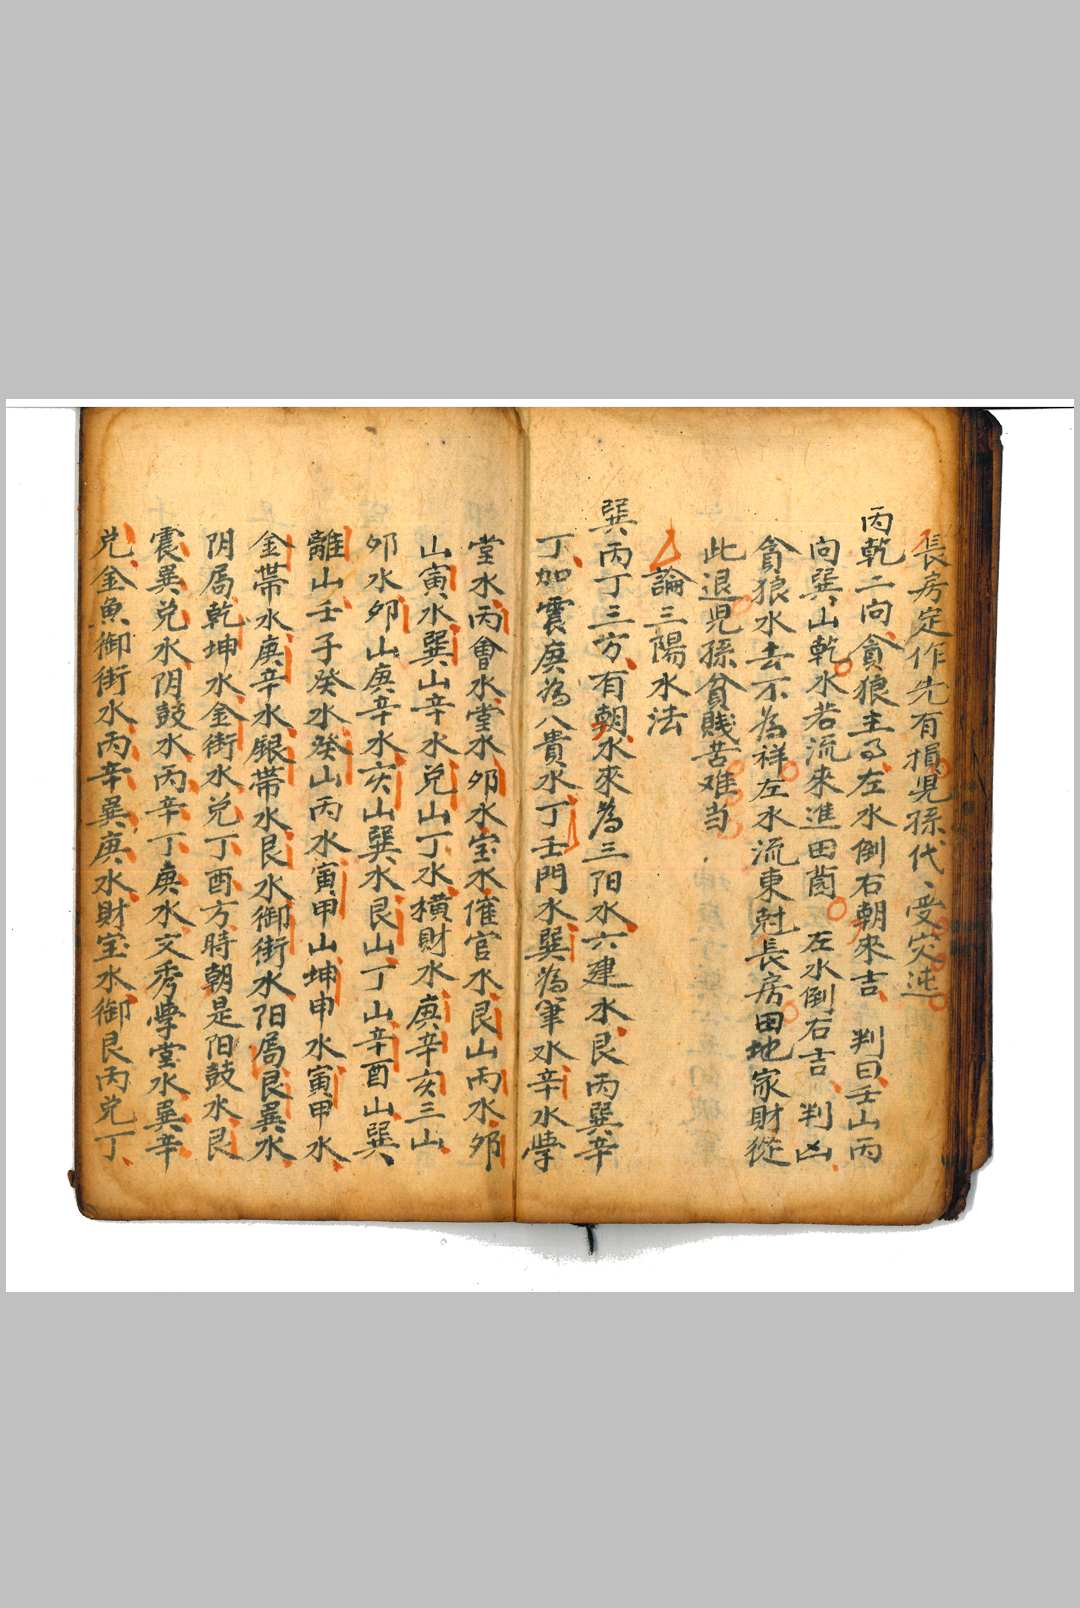 長房定作先有損児孫代、受灾迍
丙乾二向貪狼主る左水倒右朝來吉 判曰壬山丙
向巽山乾水若流來進田茵左水倒右吉 判凶
貪狼水去不為祥左水流東尅長房田地家財從
此退児孫貧賎苦难当
論三陽水法
巽丙丁三方有朝水來為三阳水六建水艮丙巽辛
丁如震庚為八貴水丁壬門水巽為筆水辛水學
堂水丙會水堂水夘水宝水催官水艮山丙水夘
山寅水巽山辛水兑山丁水横財水庚辛亥三山
夘水夘山庚辛水亥山巽水艮山丁山辛酉山巽
離山壬子癸水癸山丙水寅甲山坤申水寅甲水
金帯水庚辛水銀帯水艮水御街水阳局艮巽水
阴局乾坤水金街水兑丁酉方時朝是阳鼓水艮
震巽兑水阴鼓水丙辛丁庚水文秀學堂水巽辛
兑金魚御街水丙辛巽庚水財宝水御艮丙兑丁